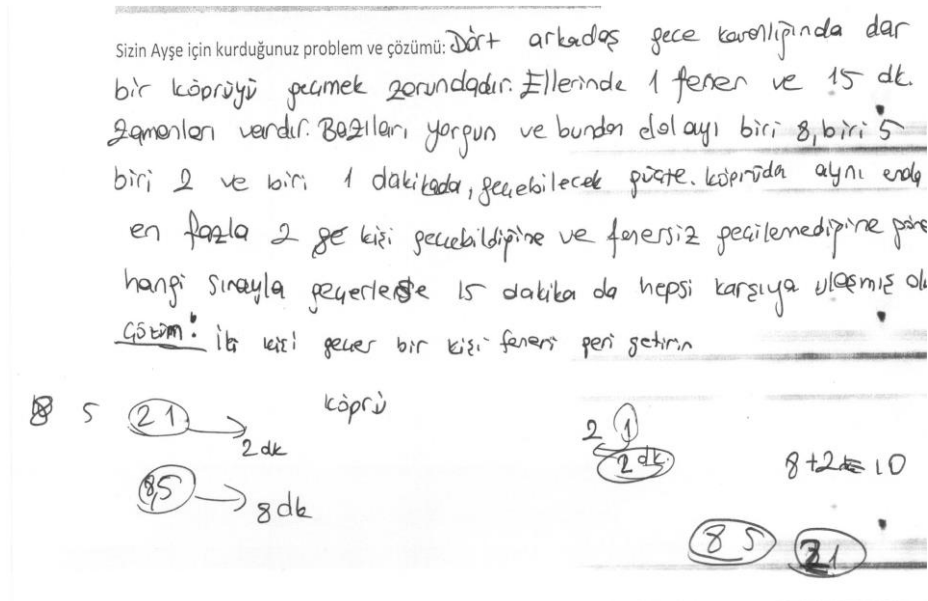 Sizin Ayşe için kurduğunuz problem ve çözümü: Dört arkadaş gece karanlığında dar
bir köprüyü geçmek zorundadır. Ellerinde 1 fener ve 15 dk.
zamanları vardır. Bazıları yorgun ve bundan dolayı biri 8, biri 5
biri 2 ve biri 1 dakikada, geçebilecek güçte. köprüda aynı anda
en fazla 2 ge kişi geçebildiğine ve fenersiz geçilemediğine göre
hangi sırayla geçerlerse 15 dakika da hepsi karşıya ulaşmış olu
Çözüm: iki kişi geçer bir kişi feneri geri getirin
8 5 21 köprü 2 1
2 dk 2 dk. 8+2=10
8,5 8 dk
8 5 21